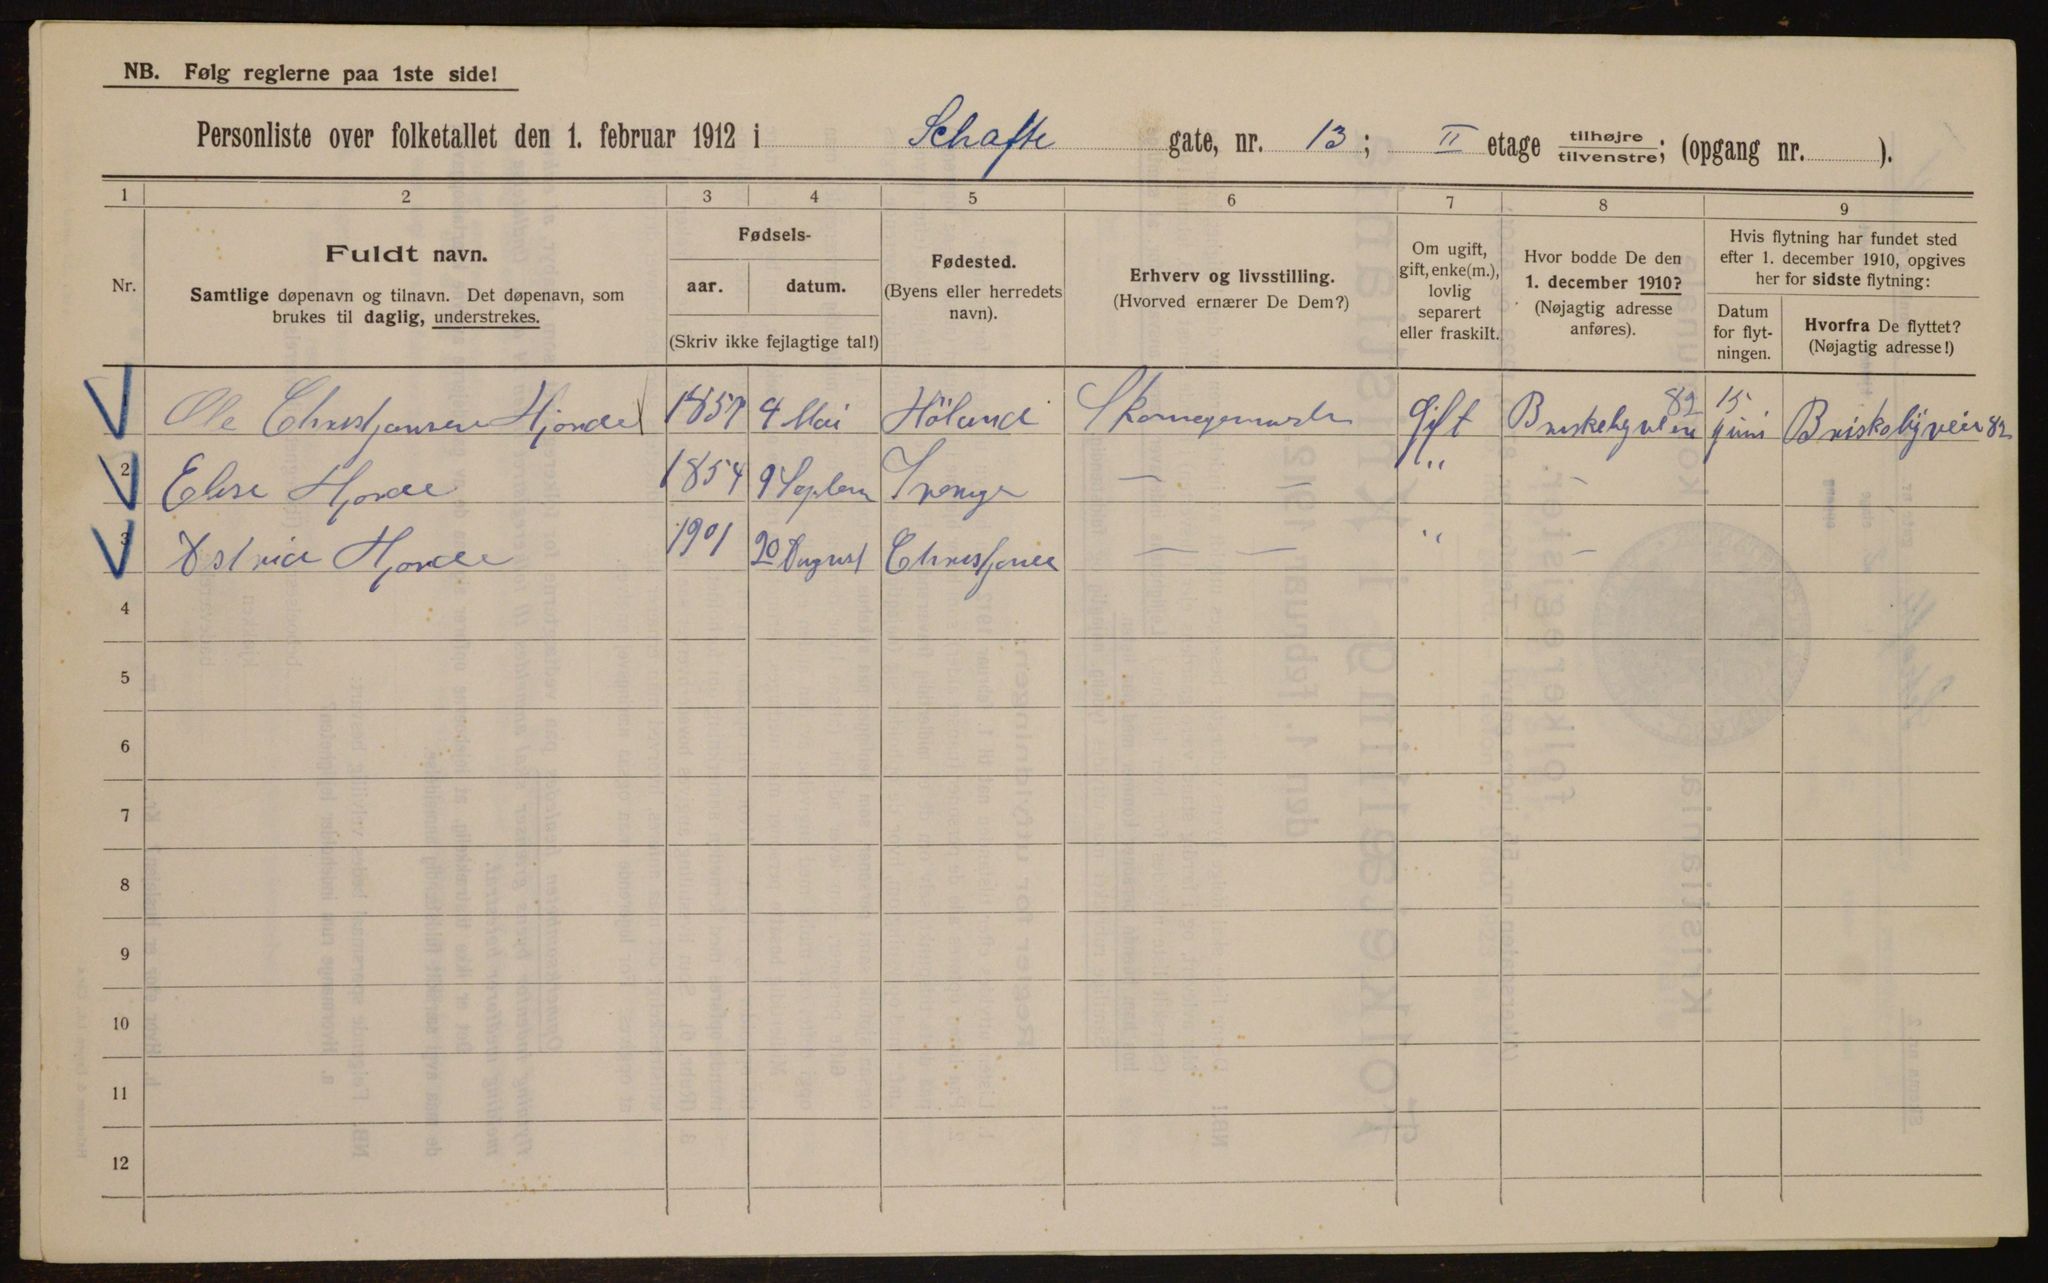 NB. Følg reglerne paa 1ste side!
Personliste over folketallet den 1. februar 1912 i Schafte gate, nr. 13; II etage tilhøjre/tilvenstre; (opgang nr. ).
1 2 3 4 5 6 7 8 9
Nr.
Fuldt navn.
Samtlige døpenavn og tilnavn. Det døpenavn, som
brukes til daglig, understrekes.
Fødsels-
aar. datum.
(Skriv ikke fejlagtige tal!)
Fødested.
(Byens eller herredets
navn).
Erhverv og livsstilling.
(Hvorved ernærer De Dem?)
Om ugift,
gift, enke(m.),
lovlig
separert
eller fraskilt.
Hvor bodde De den
1. december 1910?
(Nøjagtig adresse
anføres).
Hvis flytning har fundet sted
efter 1. december 1910, opgives
her for sidste flytning:
Datum
for flyt-
ningen.
Hvorfra De flyttet?
(Nøjagtig adresse!)
Ole Christjansen Hjorde 1857 4 Mai Höland Gift 82 15 juni Briskebyveien 82
2 Elise Hjorde 1854 9 Septem — — " —
3 Hjorde 1901 20 August Christjania — — " —
4
5
6
7
8
9
10
11
12